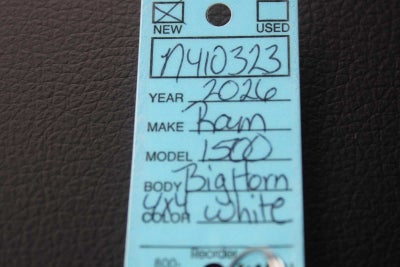 NEW USED
N410323
YEAR 2026
MAKE Ram
MODEL 1500
BODY Big Horn
4x4
COLOR White
Reorder
800-